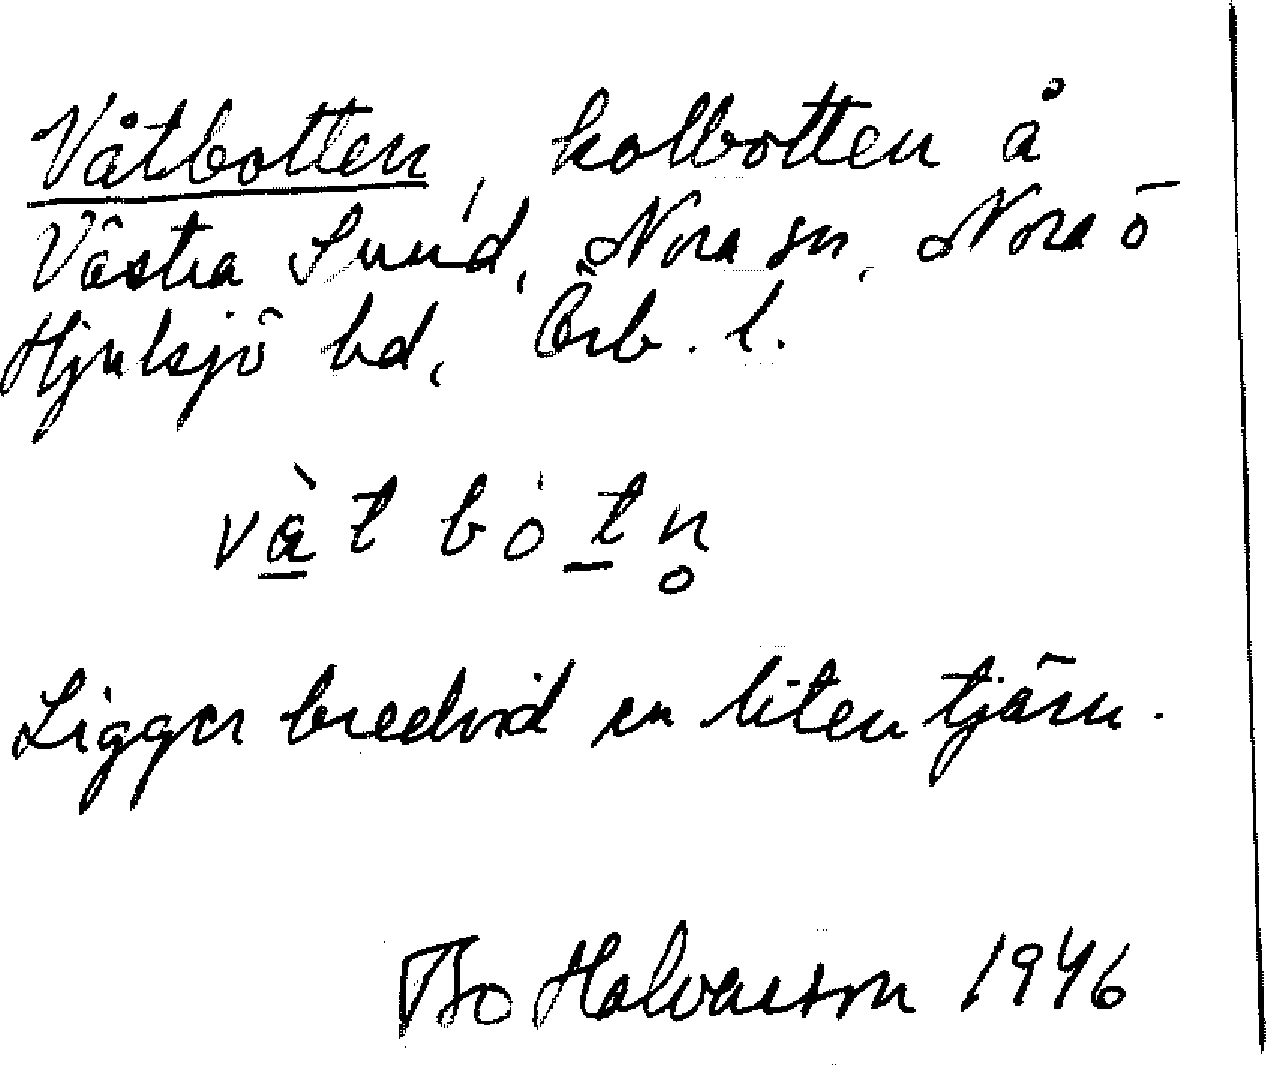 Våtbotten, kolbotten å
Västra Sund, Nora sn, Nora ö
Hjulsjö bd, Örb. l.
våt botn̥
Ligger bredvid en liten tjärn.
Bo Halvarson 1946